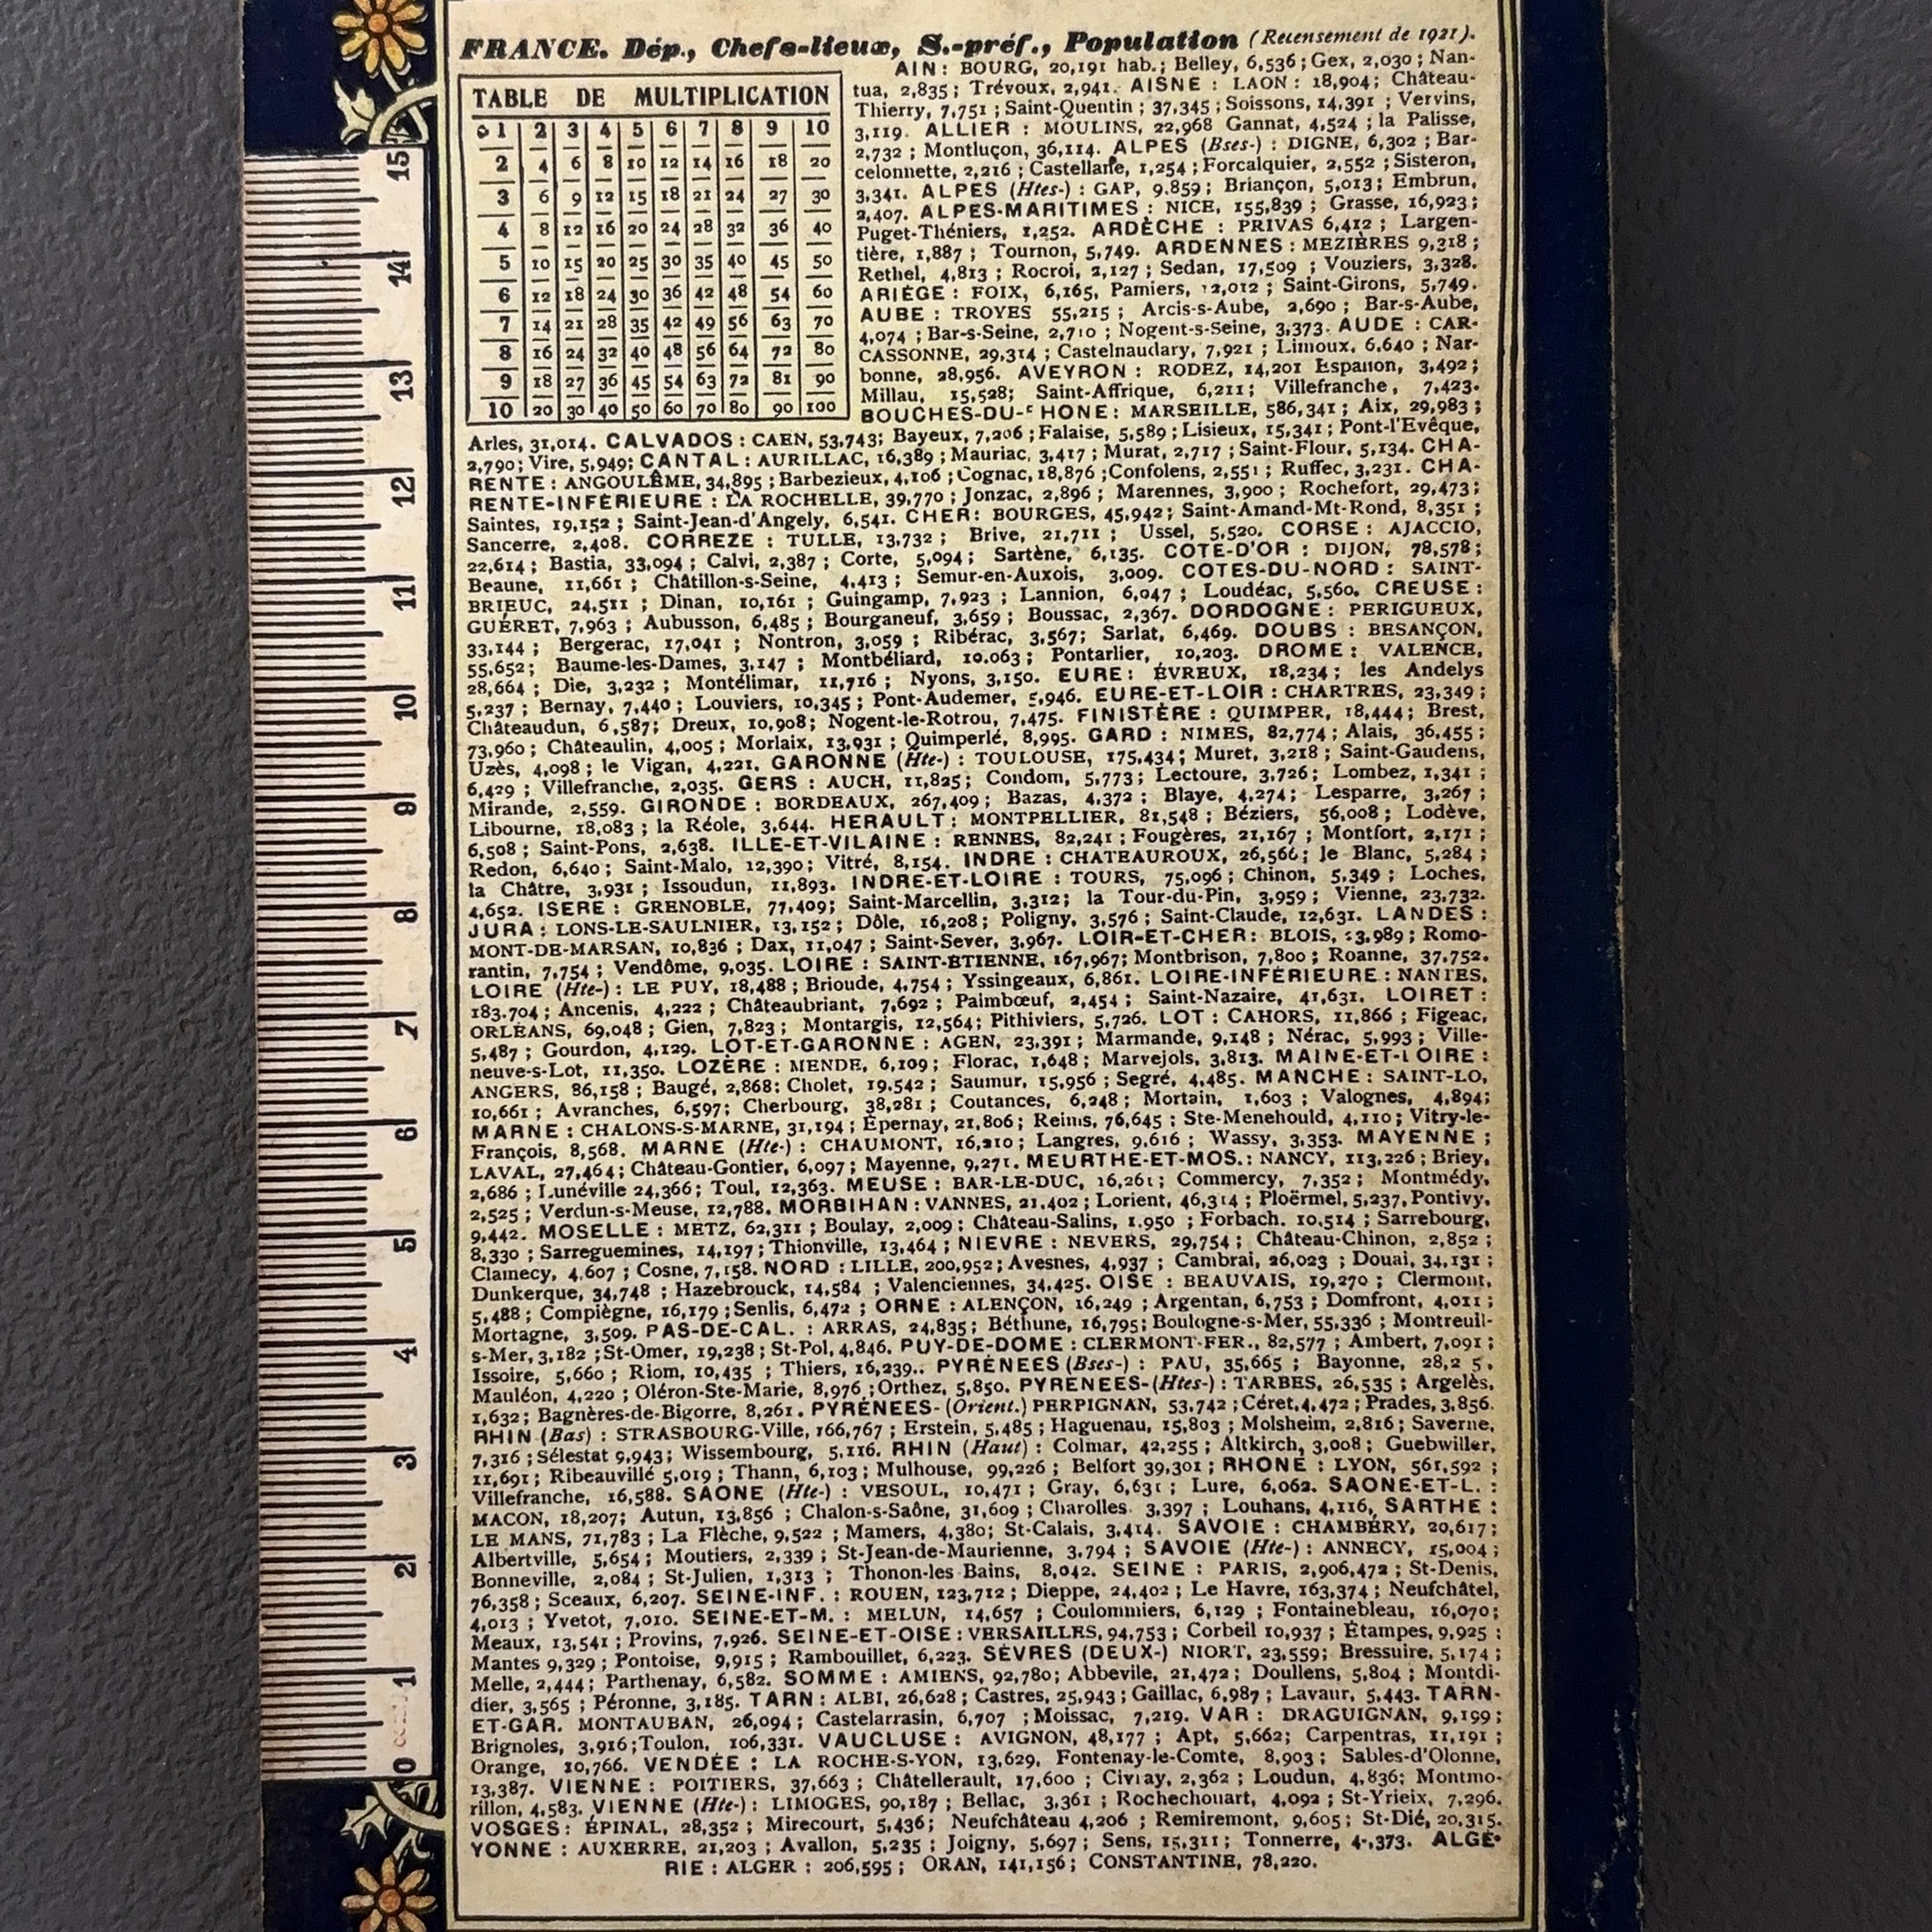 FRANCE. Dép., Chefs-lieux, S.-préf., Population (Recensement de 1921).
TABLE DE MULTIPLICATION
1 2 3 4 5 6 7 8 9 10
2 4 6 8 10 12 14 16 18 20
3 6 9 12 15 18 21 24 27 30
4 8 12 16 20 24 28 32 36 40
5 10 15 20 25 30 35 40 45 50
6 12 18 24 30 36 42 48 54 60
7 14 21 28 35 42 49 56 63 70
8 16 24 32 40 48 56 64 72 80
9 18 27 36 45 54 63 72 81 90
10 20 30 40 50 60 70 80 90 100
AIN : BOURG, 20,191 hab.; Belley, 6,536 ; Gex, 2,030 ; Nan-
tua, 2,835 ; Trévoux, 2,941. AISNE : LAON : 18,904; Château-
Thierry, 7,751 ; Saint-Quentin ; 37,345 ; Soissons, 14,391 ; Vervins,
3,119. ALLIER : MOULINS, 22,968 Gannat, 4,524 ; la Palisse,
2,732 ; Montluçon, 36,114. ALPES (Bses-) : DIGNE, 6,302 ; Bar-
celonnette, 2,216 ; Castellane, 1,254 ; Forcalquier, 2,552 ; Sisteron,
3,341. ALPES (Htes-) : GAP, 9.859 ; Briançon, 5,013; Embrun,
2,407. ALPES-MARITIMES : NICE, 155,839 ; Grasse, 16,923 ;
Puget-Théniers, 1,252. ARDÈCHE : PRIVAS 6,412 ; Largen-
tière, 1,887 ; Tournon, 5,749. ARDENNES : MEZIÈRES 9,218 ;
Rethel, 4,813 ; Rocroi, 2,127 ; Sedan, 17,509 ; Vouziers, 3,328.
ARIÉGE : FOIX, 6,165, Pamiers, 12,012 ; Saint-Girons, 5,749.
AUBE : TROYES 55,215 ; Arcis-s-Aube, 2,690 ; Bar-s-Aube,
4,074 ; Bar-s-Seine, 2,710 ; Nogent-s-Seine, 3,373. AUDE : CAR-
CASSONNE, 29,314 ; Castelnaudary, 7,921 ; Limoux, 6,640 ; Nar-
bonne, 28,956. AVEYRON : RODEZ, 14,201 Espalion, 3,492 ;
Millau, 15,528; Saint-Affrique, 6,211; Villefranche, 7,423.
BOUCHES-DU- HONE : MARSEILLE, 586,341 ; Aix, 29,983 ;
Arles, 31,014. CALVADOS : CAEN, 53,743; Bayeux, 7,206 ; Falaise, 5,589 ; Lisieux, 15,341 ; Pont-l'Evêque,
2,790; Vire, 5,949; CANTAL : AURILLAC, 16,389 ; Mauriac, 3,417 ; Murat, 2,717 ; Saint-Flour, 5,134. CHA-
RENTE : ANGOULÊME, 34,895 ; Barbezieux, 4,106 ; Cognac, 18,876 ; Confolens, 2,551 ; Ruffec, 3,231. CHA-
RENTE-INFÉRIEURE : LA ROCHELLE, 39,770 ; Jonzac, 2,896 ; Marennes, 3,900 ; Rochefort, 29,473 ;
Saintes, 19,152 ; Saint-Jean-d'Angely, 6,541. CHER: BOURGES, 45,942; Saint-Amand-Mt-Rond, 8,351 ;
Sancerre, 2,408. CORREZE : TULLE, 13,732 ; Brive, 21,711 ; Ussel, 5,520. CORSE : AJACCIO,
22,614 ; Bastia, 33,094 ; Calvi, 2,387 ; Corte, 5,094 ; Sartène, 6,135. COTE-D'OR : DIJON, 78,578 ;
Beaune, 11,661 ; Châtillon-s-Seine, 4,413 ; Semur-en-Auxois, 3,009. COTES-DU-NORD : SAINT-
BRIEUC, 24,511 ; Dinan, 10,161 ; Guingamp, 7,923 ; Lannion, 6,047 ; Loudéac, 5,560. CREUSE :
GUÉRET, 7,963 ; Aubusson, 6,485 ; Bourganeuf, 3,659 ; Boussac, 2,367. DORDOGNE : PERIGUEUX,
33,144 ; Bergerac, 17,041 ; Nontron, 3,059 ; Ribérac, 3,567; Sarlat, 6,469. DOUBS : BESANÇON,
55,652; Baume-les-Dames, 3,147 ; Montbéliard, 10.063 ; Pontarlier, 10,203. DROME : VALENCE,
28,664 ; Die, 3,232 ; Montélimar, 11,716 ; Nyons, 3,150. EURE : ÉVREUX, 18,234 ; les Andelys
5,237 ; Bernay, 7,440 ; Louviers, 10,345 ; Pont-Audemer, 5,946. EURE-ET-LOIR : CHARTRES, 23,349 ;
Châteaudun, 6,587; Dreux, 10,908; Nogent-le-Rotrou, 7,475. FINISTÈRE : QUIMPER, 18,444; Brest,
73,960 ; Châteaulin, 4,005 ; Morlaix, 13,931 ; Quimperlé, 8,995. GARD : NIMES, 82,774 ; Alais, 36,455 ;
Uzès, 4,098 ; le Vigan, 4,221. GARONNE (Hte-) : TOULOUSE, 175,434; Muret, 3,218 ; Saint-Gaudens,
6,429 ; Villefranche, 2,035. GERS : AUCH, 11,825; Condom, 5,773; Lectoure, 3,726; Lombez, 1,341 ;
Mirande, 2,559. GIRONDE : BORDEAUX, 267,409; Bazas, 4,372 ; Blaye, 4,274; Lesparre, 3,267 ;
Libourne, 18,083 ; la Réole, 3,644. HERAULT : MONTPELLIER, 81,548 ; Béziers, 56,008 ; Lodève,
6,508 ; Saint-Pons, 2,638. ILLE-ET-VILAINE : RENNES, 82,241 ; Fougères, 21,167 ; Montfort, 2,171 ;
Redon, 6,640 ; Saint-Malo, 12,390 ; Vitré, 8,154. INDRE : CHATEAUROUX, 26,566; le Blanc, 5,284 ;
la Châtre, 3,931 ; Issoudun, 11,893. INDRE-ET-LOIRE : TOURS, 75,096 ; Chinon, 5,349 ; Loches,
4,652. ISERE : GRENOBLE, 77,409; Saint-Marcellin, 3,312; la Tour-du-Pin, 3,959 ; Vienne, 23,732.
JURA : LONS-LE-SAULNIER, 13,152 ; Dôle, 16,208 ; Poligny, 3,576 ; Saint-Claude, 12,631. LANDES :
MONT-DE-MARSAN, 10,836 ; Dax, 11,047 ; Saint-Sever, 3,967. LOIR-ET-CHER: BLOIS, 3,989 ; Romo-
rantin, 7,754 ; Vendôme, 9,035. LOIRE : SAINT-ETIENNE, 167,967; Montbrison, 7,800 ; Roanne, 37,752.
LOIRE (Hte-) : LE PUY, 18,488 ; Brioude, 4,754 ; Yssingeaux, 6,861. LOIRE-INFÉRIEURE : NANTES,
183,704 ; Ancenis, 4,222 ; Châteaubriant, 7,692 ; Paimbœuf, 2,454 ; Saint-Nazaire, 41,631. LOIRET :
ORLÉANS, 69,048 ; Gien, 7,823 ; Montargis, 12,564; Pithiviers, 5,726. LOT : CAHORS, 11,866 ; Figeac,
5,487 ; Gourdon, 4,129. LOT-ET-GARONNE : AGEN, 23,391 ; Marmande, 9,148 ; Nérac, 5,993 ; Ville-
neuve-s-Lot, 11,350. LOZÈRE : MENDE, 6,109 ; Florac, 1,648 ; Marvejols, 3,813. MAINE-ET-LOIRE :
ANGERS, 86,158 ; Baugé, 2,868: Cholet, 19,542 ; Saumur, 15,956 ; Segré, 4,485. MANCHE : SAINT-LO,
10,661 ; Avranches, 6,597; Cherbourg, 38,281 ; Coutances, 6,248 ; Mortain, 1,603 ; Valognes, 4,894;
MARNE : CHALONS-S-MARNE, 31,194 ; Épernay, 21,806; Reims, 76,645 ; Ste-Menehould, 4,110; Vitry-le-
François, 8,568. MARNE (Hte-) : CHAUMONT, 16,210 ; Langres, 9,616 ; Wassy, 3,353. MAYENNE ;
LAVAL, 27,464; Château-Gontier, 6,097 ; Mayenne, 9,271. MEURTHE-ET-MOS.: NANCY, 113,226 ; Briey,
2,686 ; Lunéville 24,366; Toul, 12,363. MEUSE : BAR-LE-DUC, 16,261 ; Commercy, 7,352 ; Montmédy,
2,525 ; Verdun-s-Meuse, 12,788. MORBIHAN : VANNES, 21,402 ; Lorient, 46,314 ; Ploërmel, 5,237, Pontivy,
9,442. MOSELLE : METZ, 62,311 ; Boulay, 2,009 ; Château-Salins, 1,950 ; Forbach. 10,514 ; Sarrebourg,
8,330 ; Sarreguemines, 14,197 ; Thionville, 13,464 ; NIEVRE : NEVERS, 29,754 ; Château-Chinon, 2,852 ;
Clamecy, 4,607 ; Cosne, 7,158. NORD : LILLE, 200,952; Avesnes, 4,937 ; Cambrai, 26,023 ; Douai, 34,131 ;
Dunkerque, 34,748 ; Hazebrouck, 14,584 ; Valenciennes, 34,425. OISE : BEAUVAIS, 19,270 ; Clermont,
5,488 ; Compiègne, 16,179 ; Senlis, 6,472 ; ORNE : ALENÇON, 16,249 ; Argentan, 6,753 ; Domfront, 4,011 ;
Mortagne, 3,509. PAS-DE-CAL. : ARRAS, 24,835; Béthune, 16,795; Boulogne-s-Mer, 55,336 ; Montreuil-
s-Mer, 3,182 ; St-Omer, 19,238 ; St-Pol, 4,846. PUY-DE-DOME : CLERMONT-FER., 82,577 ; Ambert, 7,091 ;
Issoire, 5,660 ; Riom, 10,435 ; Thiers, 16,239.. PYRÉNEES (Bses-) : PAU, 35,665 ; Bayonne, 28,2 5.
Mauléon, 4,220 ; Oléron-Ste-Marie, 8,976 ; Orthez, 5,850. PYRENEES-(Htes-) : TARBES, 26,535 ; Argelès,
1,632; Bagnères-de-Bigorre, 8,261. PYRÉNEES- (Orient.) PERPIGNAN, 53,742 ; Céret, 4,472 ; Prades, 3,856.
RHIN (Bas) : STRASBOURG-Ville, 166,767 ; Erstein, 5,485 ; Haguenau, 15,803 ; Molsheim, 2,816; Saverne,
7,316 ; Sélestat 9,943; Wissembourg, 5,116. RHIN (Haut) : Colmar, 42,255 ; Altkirch, 3,008 ; Guebwiller,
11,691; Ribeauvillé 5,019 ; Thann, 6,103 ; Mulhouse, 99,226 ; Belfort 39,301 ; RHONE : LYON, 561,592 ;
Villefranche, 16,588. SAONE (Hte-) : VESOUL, 10,471 ; Gray, 6,631 ; Lure, 6,062. SAONE-ET-L. :
MACON, 18,207; Autun, 13,856 ; Chalon-s-Saône, 31,609 ; Charolles 3,397 ; Louhans, 4,116, SARTHE :
LE MANS, 71,783 ; La Flèche, 9,522 ; Mamers, 4,380; St-Calais, 3,414. SAVOIE : CHAMBÉRY, 20,617;
Albertville, 5,654 ; Moutiers, 2,339 ; St-Jean-de-Maurienne, 3,794 ; SAVOIE (Hte-) : ANNECY, 15,004 ;
Bonneville, 2,084 ; St-Julien, 1,313 ; Thonon-les Bains, 8,042. SEINE : PARIS, 2,906,472 ; St-Denis,
76,358 ; Sceaux, 6,207. SEINE-INF. : ROUEN, 123,712 ; Dieppe, 24,402 ; Le Havre, 163,374 ; Neufchâtel,
4,013 ; Yvetot, 7,010. SEINE-ET-M. : MELUN, 14,657 ; Coulommiers, 6,129 ; Fontainebleau, 16,070;
Meaux, 13,541 ; Provins, 7,926. SEINE-ET-OISE : VERSAILLES, 94,753 ; Corbeil 10,937 ; Étampes, 9,925 :
Mantes 9,329 ; Pontoise, 9,915 ; Rambouillet, 6,223. SÈVRES (DEUX-) NIORT, 23,559; Bressuire, 5,174 ;
Melle, 2,444; Parthenay, 6,582. SOMME : AMIENS, 92,780; Abbevile, 21,472 ; Doullens, 5,804 ; Montdi-
dier, 3,565 ; Péronne, 3,185. TARN : ALBI, 26,628 ; Castres, 25,943 ; Gaillac, 6,987 ; Lavaur, 5,443. TARN-
ET-GAR. MONTAUBAN, 26,094 ; Castelarrasin, 6,707 ; Moissac, 7,219. VAR : DRAGUIGNAN, 9,199 ;
Brignoles, 3,916 ; Toulon, 106,331. VAUCLUSE : AVIGNON, 48,177 ; Apt, 5,662; Carpentras, 11,191 ;
Orange, 10,766. VENDÉE : LA ROCHE-S-YON, 13,629, Fontenay-le-Comte, 8,903 ; Sables-d'Olonne,
13,387. VIENNE : POITIERS, 37,663 ; Châtellerault, 17,600 ; Civray, 2,362 ; Loudun, 4,836; Montmo-
rillon, 4,583. VIENNE (Hte-) : LIMOGES, 90,187 ; Bellac, 3,361 ; Rochechouart, 4,092 ; St-Yrieix, 7,296.
VOSGES : ÉPINAL, 28,352 ; Mirecourt, 5,436; Neufchâteau 4,206 ; Remiremont, 9,605 ; St-Dié, 20,315.
YONNE : AUXERRE, 21,203 ; Avallon, 5,235 ; Joigny, 5,697 ; Sens, 15,311; Tonnerre, 4-,373. ALGÉ-
RIE : ALGER : 206,595 ; ORAN, 141,156 ; CONSTANTINE, 78,220.
15
14
13
12
11
10
9
8
7
6
5
4
3
2
1
0